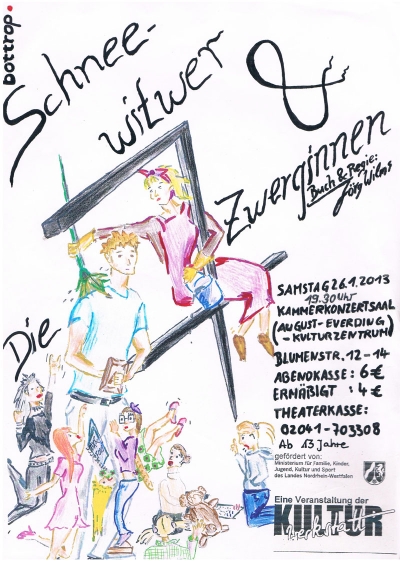 Bottrop.
Schnee-
witwer
&
Die
7
Zwerginnen
Buch & Regie:
Jörg Wilms
SAMSTAG 26.1.2013
19.30 Uhr
KAMMERKONZERTSAAL
(AUGUST-EVERDING)
-KULTURZENTRUM)
BLUMENSTR. 12-14
ABENDKASSE: 6 €
ERMÄßIGT : 4 €
THEATERKASSE:
02041-703308
Ab 13 Jahre
gefördert von:
Ministerium für Familie, Kinder,
Jugend, Kultur und Sport
des Landes Nordrhein-Westfalen
Eine Veranstaltung der
KULTUR
werkstatt